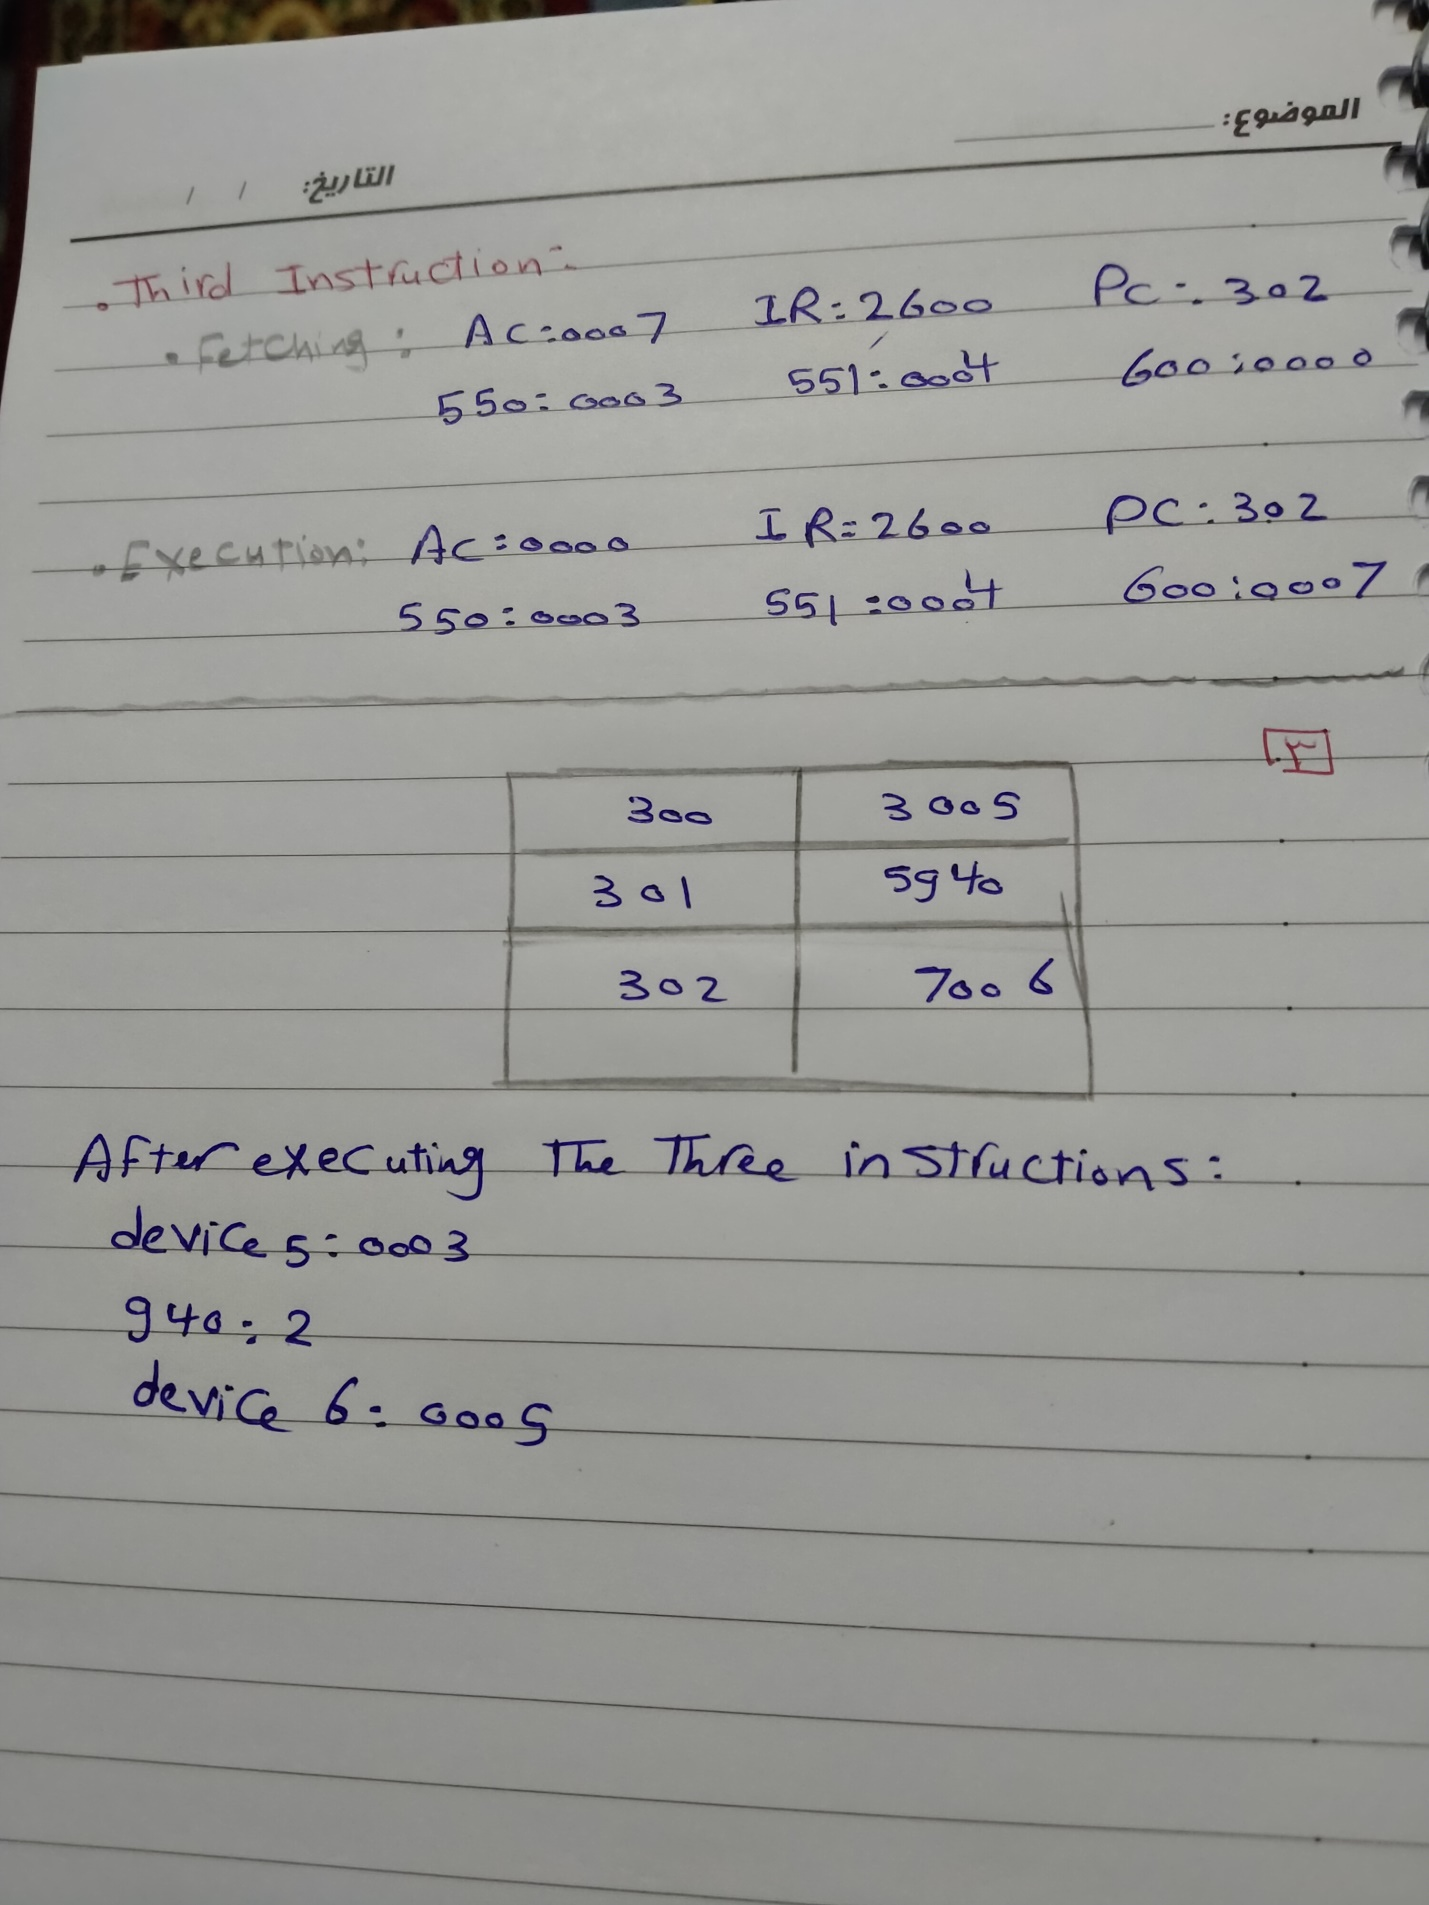 الموضوع:
التاريخ: / /
. Third Instruction:-
. Fetching: AC:0007 IR:2600 PC:302
550:0003 551:0004 600:0000
. Execution: AC:0000 IR=2600 PC:302
550:0003 551:0004 600:0007
٣
300 3005
301 5940
302 7006
After executing The Three instructions:
device 5:0003
940:2
device 6:0005